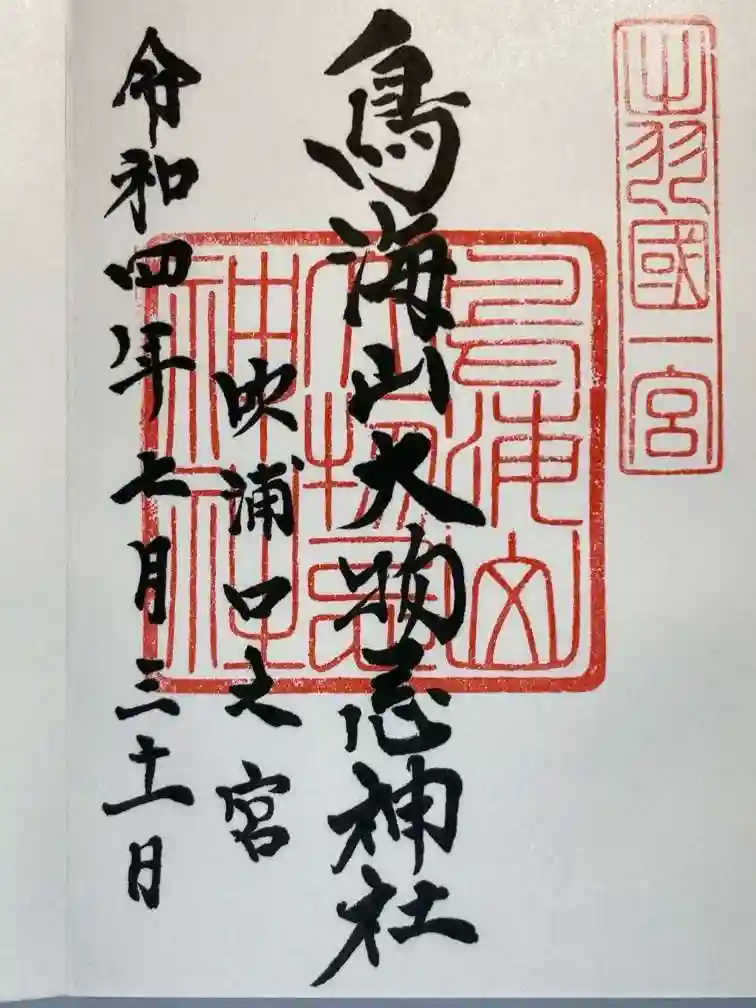 出羽國一宮
鳥海山大物忌神社
鳥海山
大物忌
神社
吹浦口之宮
令和四年七月三十一日